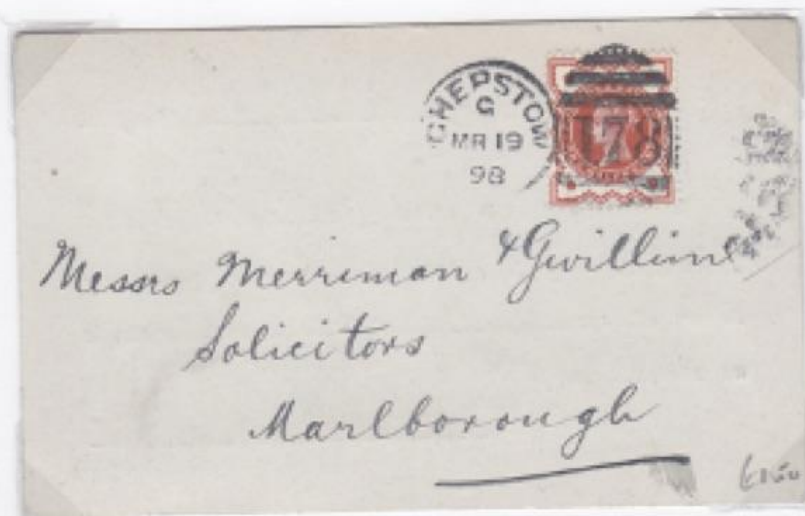 CHEPSTOW
G
MR 19
98
Messrs Merriman & Gwillim
Solicitors
Marlborough